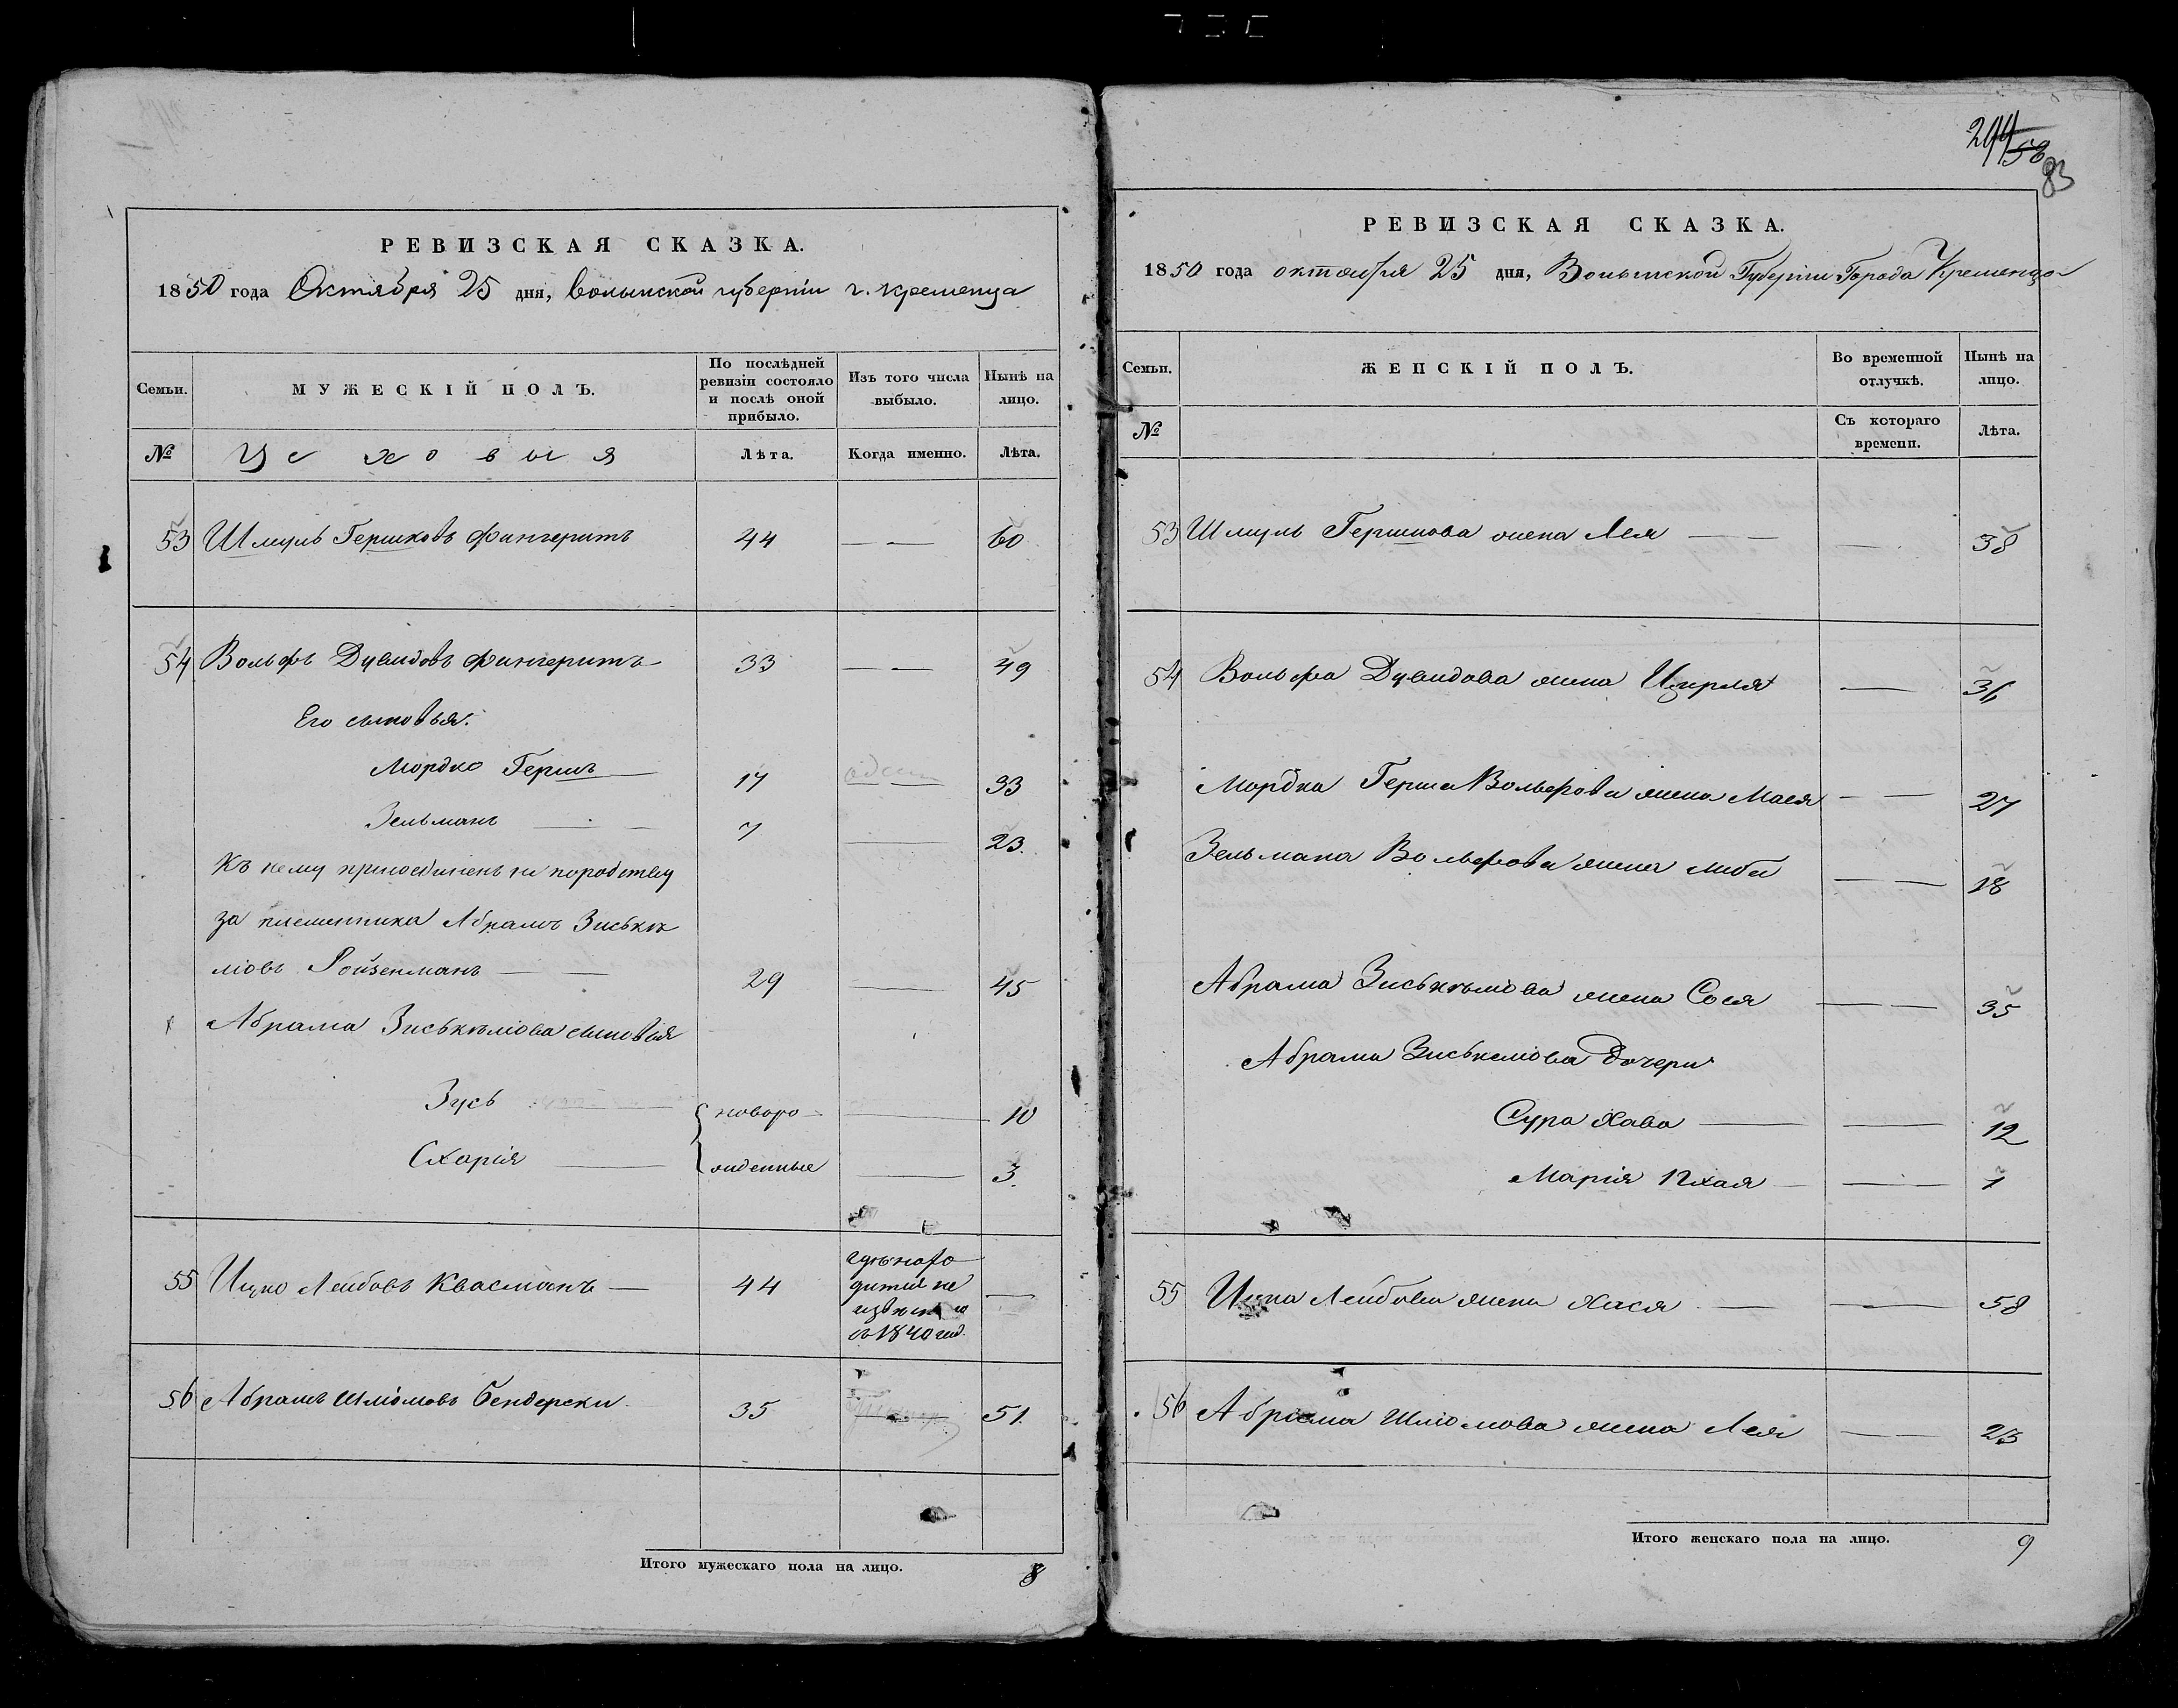 РЕВИЗСКАЯ СКАЗКА.
1850 года Октября 25 дня, волынской губерніи г. кременца
Семьи.
МУЖЕСКІЙ ПОЛЪ.
По послѣдней ревизіи состояло и послѣ оной прибыло.
Изъ того числа выбыло.
Нынѣ на лицо.
№
Цеховыя
Лѣта.
Когда именно.
Лѣта.
53 Шмуль Гершковъ Фингеритъ 44 60
54 Вольфъ Дувидовъ Фингеритъ 33 49
Его сыновья:
Мордко Гершъ 17 33
Зельманъ 7 23
Къ нему присоединенъ по родству
за племянника Абрамъ Зиськѣ
міовъ Ройзенманъ 29 45
Абрама Зиськѣміова сыновья
Зусь новоро 10
Схарія жденные 3
55 Ицко Лейбовъ Квасманъ 44 гдѣ нахо
дится не
извѣстно
съ 1840 год.
56 Абрамъ Шліомовъ Бендерски 35 51
Итого мужескаго пола на лицо. 8
294 53
83
РЕВИЗСКАЯ СКАЗКА.
1850 года октября 25 дня, Волынской Губерніи Города Кременца
Семьи.
ЖЕНСКІЙ ПОЛЪ.
Во временной отлучкѣ.
Нынѣ на лицо.
№
Съ котораго времени.
Лѣта.
53 Шмуль Гершкова жена Лея 38
54 Вольфа Дувидова жена Цирля 36
Мордка Герша Вольфова жена Мася 27
Зельмана Вольфова жена Либа 18
Абрама Зиськѣміова жена Сося 35
Абрама Зиськеміова Дочери
Сура Хава 12
Марія 1
55 Ицка Лейбова жена Хася 58
56 Абрама Шліомова жена Лея 23
Итого женскаго пола на лицо. 9